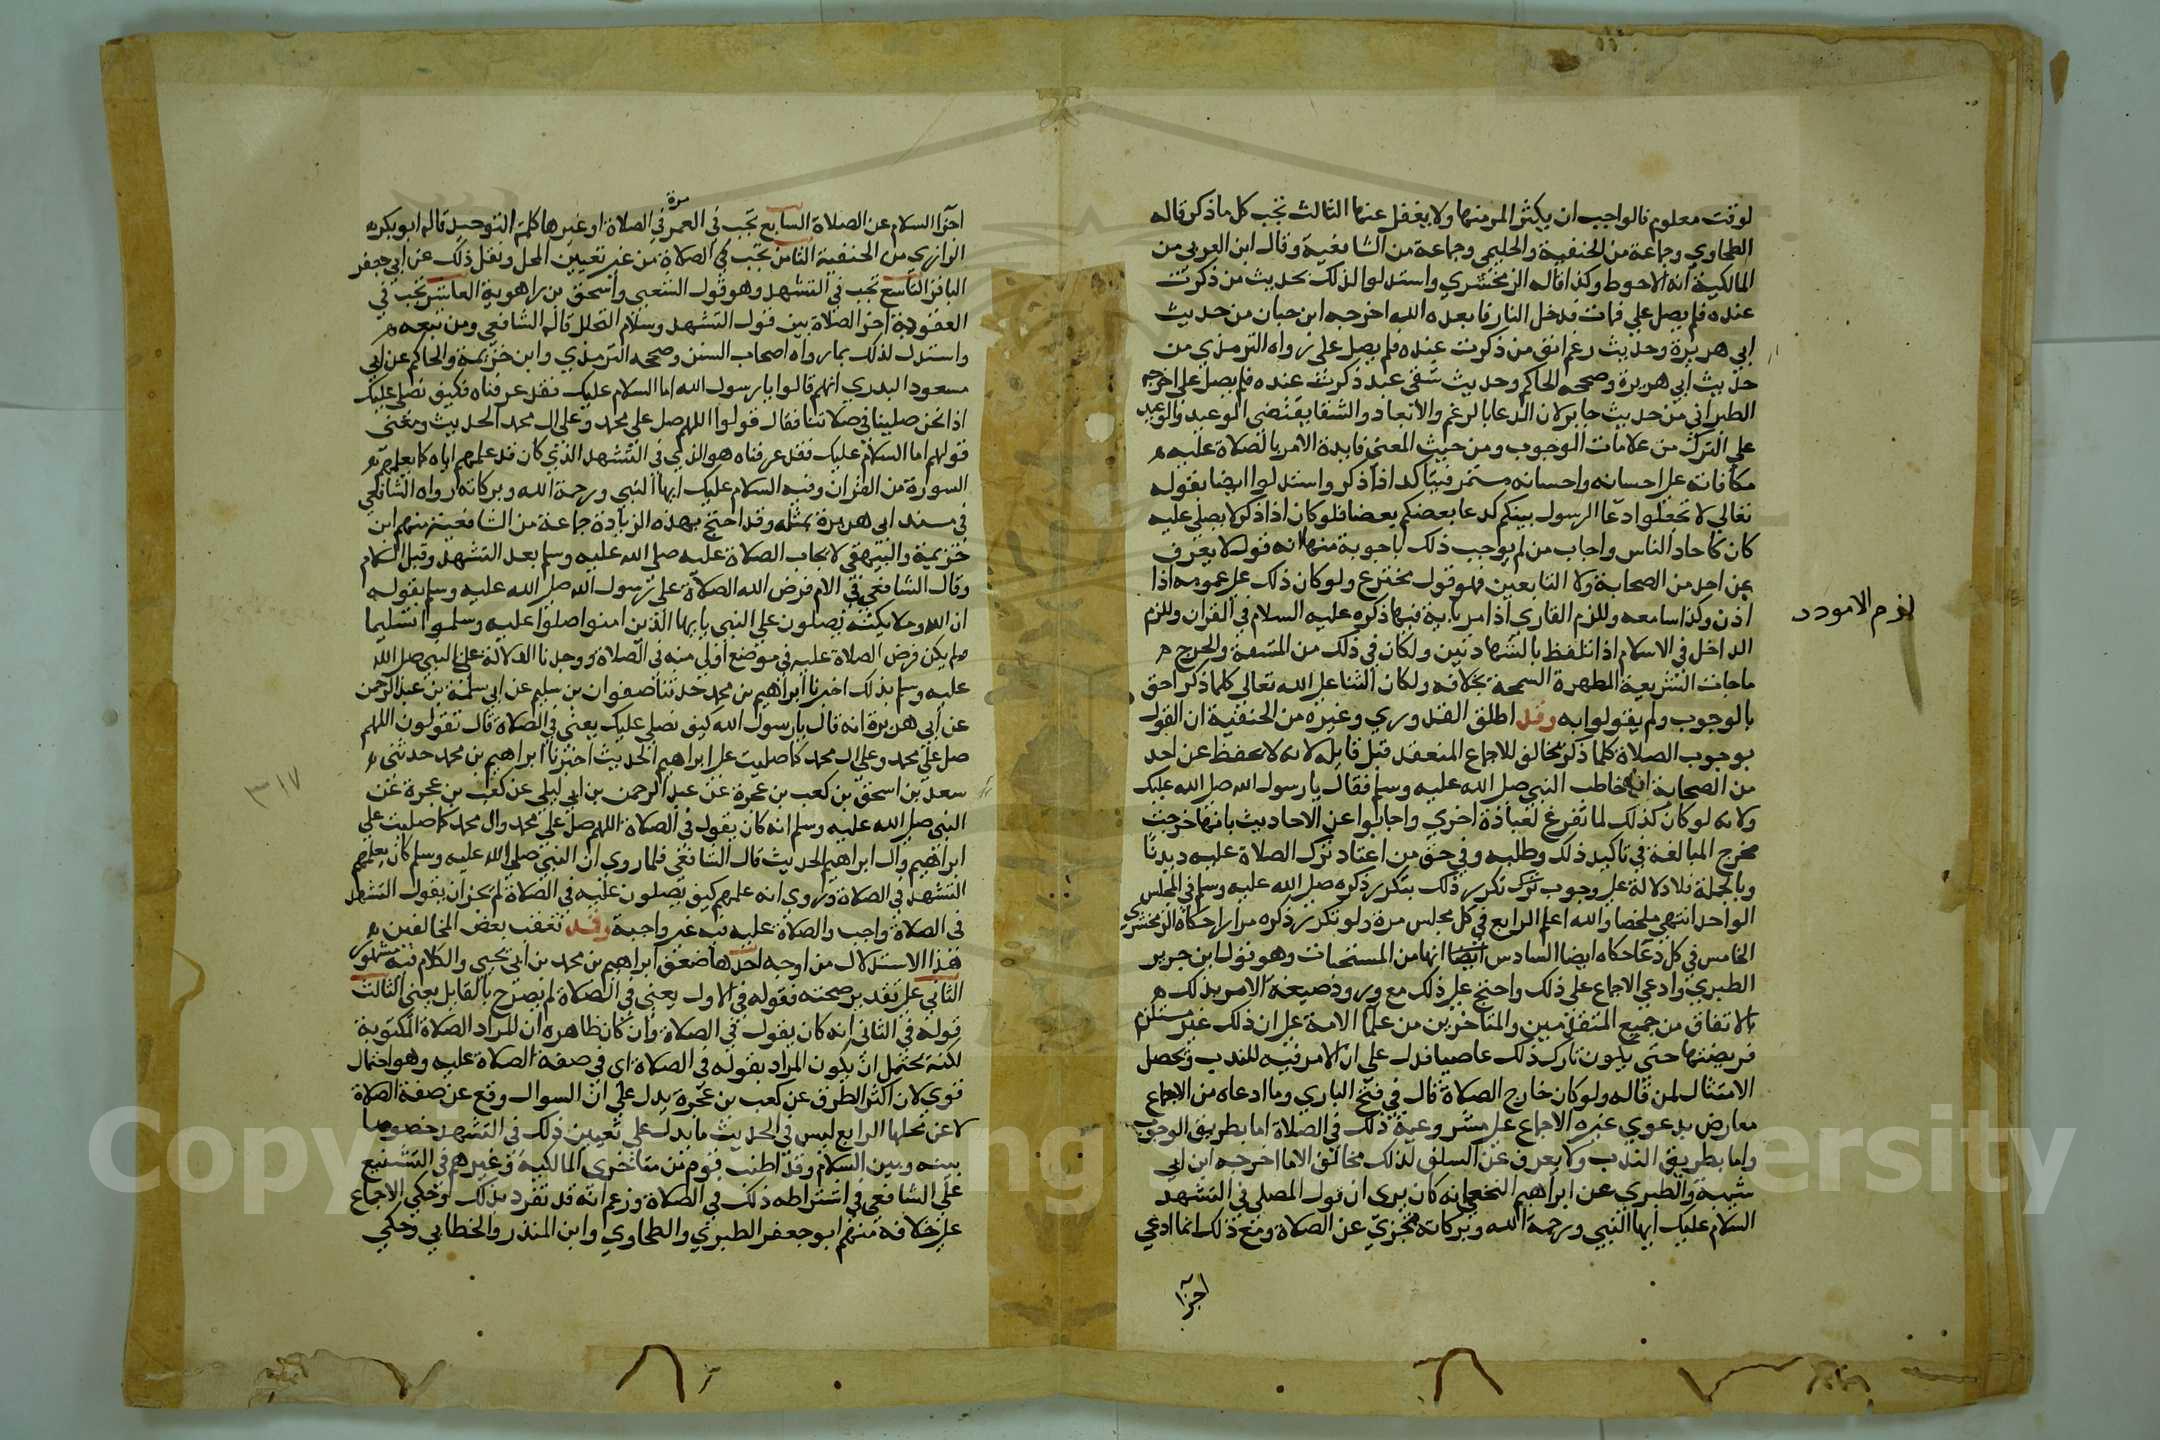 لوقت معلوم فالواجب ان يكثر المرمنها ولا يغفل عنها الثالث تجب كل ما ذكر قاله
الطحاوي وجماعة من الحنفية والحليمي وجماعة من الشافعية وقال ابن العربي من
المالكية انه الاحوط وكذا قاله الزمخشري واستدلوا لذلك بحديث من ذكرت
عنده فلم يصل علي فمات فدخل النار فابعده الله اخرجه ابن حبان من حديث
ابي هريرة وحديث رغم انف من ذكرت عنده فلم يصل علي رواه الترمذي من
حديث ابي هريرة وصححه الحاكم وحديث شقي عبد ذكرت عنده فلم يصل علي اخرجه
الطبراني من حديث جابر لان الدعا بالرغم والابعاد والشقا يقتضي الوعيد والوعيد
علي الترك من علامات الوجوب ومن حيث المعني فايدة الامر بالصلاة عليه
مكافاته علي احسانه واحسانه مستمر فيتاكد اذا ذكر واستدلوا ايضا بقوله
تعالي لا تجعلوا دعا الرسول بينكم كدعا بعضكم بعضا فلو كان اذا ذكر لا يصلي عليه
كان كاحاد الناس واجاب من لم يوجب ذلك باجوبة منها انه قول لا يعرف
عن احد من الصحابة ولا التابعين فهو قول مخترع ولو كان ذلك علي عمومه اذا
اذن وكذا سامعه وللزم القاري اذا مر باية فيها ذكره عليه السلام في القران وللزم
لزم الامودد
الداخل في الاسلام اذا تلفظ بالشهادتين ولكان في ذلك من المشقة والحرج
ما جات الشريعة المطهرة السمحة بخلافه ولكان الثنا علي الله تعالي كلما ذكر احق
بالوجوب ولم يقولوا به وقد اطلق القدوري وغيره من الحنفية ان القول
بوجوب الصلاة كلما ذكر مخالف للاجماع المنعقد قبل قايله لانه لا يحفظ عن احد
من الصحابة انه خاطب النبي صلي الله عليه وسلم فقال يا رسول الله صلي الله عليك
ولانه لو كان كذلك لما تفرغ لعبادة اخري واجابوا عن الاحاديث بانها خرجت
مخرج المبالغة في تاكيد ذلك وطلبه وفي حق من اعتاد ترك الصلاة عليه ديدنا
وبالجملة فلا دلالة علي وجوب تكرر ذلك بتكرر ذكره صلي الله عليه وسلم في المجلس
الواحد انتهي ملخصا والله اعلم الرابع في كل مجلس مرة ولو تكرر ذكره مرارا حكاه الزمخشري
الخامس في كل دعا حكاه ايضا السادس انها من المستحبات وهو قول ابن جرير
الطبري وادعي الاجماع علي ذلك واحتج علي ذلك مع ورود صيغة الامر بذلك
بالاتفاق من جميع المتقدمين والمتاخرين من علما الامة علي ان ذلك غير مستلزم
فريضتها حتي يكون تارك ذلك عاصيا فدل علي ان الامر فيه للندب وتحصل
الامتثال لمن قاله ولو كان خارج الصلاة قال في فتح الباري وما ادعاه من الاجماع
معارض بدعوي غيره الاجماع علي مشروعية ذلك في الصلاة اما بطريق الوجوب
واما بطريق الندب ولا يعرف عن السلف لذلك مخالف الا ما اخرجه ابن ابي
شيبة والطبري عن ابراهيم النخعي انه كان يري ان قول المصلي في التشهد
السلام عليك ايها النبي ورحمة الله وبركاته تجزي عن الصلاة ومع ذلك انما ادعي
اجزا
اجزا السلام عن الصلاة السابع تجب في العمر مرة في الصلاة او غيرها ككلمة التوحيد قاله ابو بكر
الرازي من الحنفية الثامن تجب في الصلاة من غير تعيين المحل ونقل ذلك عن ابي جعفر
الباقر التاسع تجب في التشهد وهو قول الشعبي واسحق بن راهوية العاشر تجب في
القعود اخر الصلاة بين قول التشهد وسلام التحلل قاله الشافعي ومن تبعه
واستدل لذلك بما رواه اصحاب السنن وصححه الترمذي وابن خزيمة والحاكم عن ابي
مسعود البدري انهم قالوا يا رسول الله اما السلام عليك فقد عرفناه فكيف نصلي عليك
اذا نحن صلينا في صلاتنا فقال قولوا اللهم صل علي محمد وعلي ال محمد الحديث ومعني
قولهم اما السلام عليك فقد عرفناه هو الذي في التشهد الذي كان قد علمهم اياه كما يعلمهم
السورة من القران وفيه السلام عليك ايها النبي ورحمة الله وبركاته رواه الشافعي
في مسند ابي هريرة بمثله وقد احتج بهذه الزيادة جماعة من الشافعية منهم ابن
خزيمة والبيهقي لايجاب الصلاة عليه صلي الله عليه وسلم بعد التشهد وقبل السلام
وقال الشافعي في الام فرض الله الصلاة علي رسول الله صلي الله عليه وسلم بقوله
ان الله وملايكته يصلون علي النبي يا يها الذين امنوا صلوا عليه وسلموا تسليما
ولم يكن فرض الصلاة عليه في موضع اولي منه في الصلاة ووجدنا الدلالة علي النبي صلي الله
عليه وسلم بذلك اخبرنا ابراهيم بن محمد حدثنا صفوان بن سليم عن ابي سلمة بن عبد الرحمن
عن ابي هريرة انه قال يا رسول الله كيف نصلي عليك يعني في الصلاة قال تقولون اللهم
صل علي محمد وعلي ال محمد كما صليت علي ابراهيم الحديث اخبرنا ابراهيم بن محمد حدثني
٣١٧
سعد بن اسحق بن كعب بن عجرة عن عبد الرحمن بن ابي ليلي عن كعب بن عجرة عن
النبي صلي الله عليه وسلم انه كان يقول في الصلاة اللهم صل علي محمد وال محمد كما صليت علي
ابراهيم وال ابراهيم الحديث قال الشافعي فلما روي ان النبي صلي الله عليه وسلم كان يعلمهم
التشهد في الصلاة وروي انه علمهم كيف يصلون عليه في الصلاة لم يجز ان يقول التشهد
في الصلاة واجب والصلاة عليه فيه غير واجبة وقد تعقب بعض المخالفين
هذا الاستدلال من اوجه احدها ضعف ابراهيم بن محمد بن ابي يحيي والكلام فيه مشهور
الثاني علي تقدير صحته فقوله في الاول يعني في الصلاة لم يصرح بالقايل يعني الثالث
قوله في الثاني انه كان يقول في الصلاة وان كان ظاهره ان المراد الصلاة المكتوبة
لكنه يحتمل ان يكون المراد بقوله في الصلاة اي في صفة الصلاة عليه وهو احتمال
قوي لان اكثر الطرق عن كعب بن عجرة يدل علي ان السوال وقع عن صفة الصلاة
لا عن محلها الرابع ليس في الحديث ما يدل علي تعيين ذلك في التشهد خصوصا
بينه وبين السلام وقد اطنب قوم من متاخري المالكية وغيرهم في التشنيع
علي الشافعي في اشتراطه ذلك في الصلاة وزعم انه قد تفرد بذلك وحكي الاجماع
علي خلافه منهم ابو جعفر الطبري والطحاوي وابن المنذر والخطابي وحكي